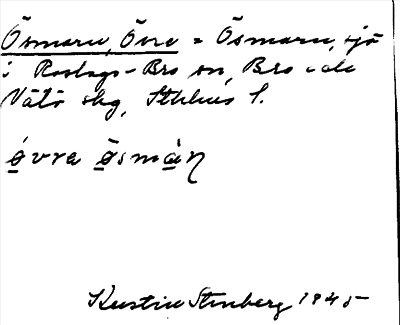 Ösmaren, Övre = Ösmaren, sjö
i Roslags-Bro sn, Bro o del
Vätö skg, Sthlms l.
øvra øsmàn
Kerstin Stenberg 1945